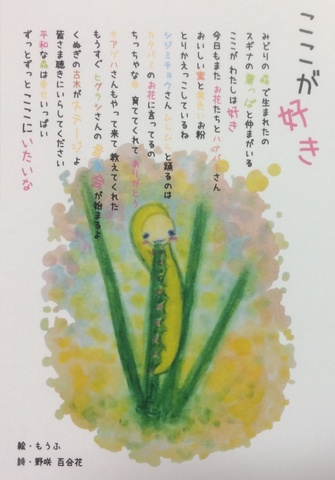 ここが好き
みどりの森で生まれたの
スギナの葉っぱと仲まがいる
ここが わたしは好き
今日もまた お花たちとハナバチさん
おいしい蜜と お粉
とりかえっこしているね
シジミチョウさん ひらひらと踊るのは
カタバミのお花に言ってるの
ちっちゃな 育ててくれて ありがとう
キアゲハさんもやって来て 教えてくれた
もうすぐ ヒグラシさんの 音楽会が始まるよ
くぬぎの古木が ステージよ
皆さま聴きにいらしてください
平和な森は 幸せいっぱい
ずっとずっと ここに いたいな
絵・もうふ
詩・野咲 百合花